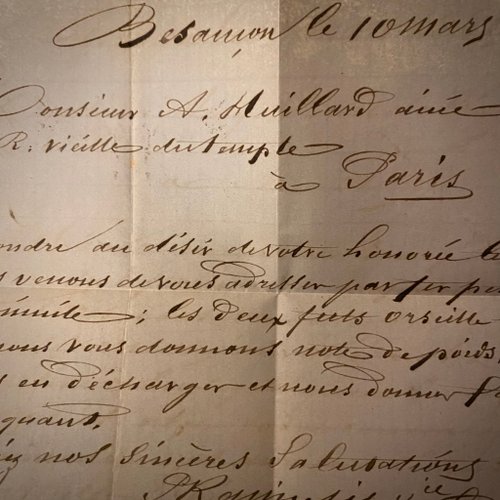 Besançon le 10 mars
Monsieur A. Huillard ainé
R. vieille du temple
à Paris
ondre au désir de votre honorée
s venons de vous adresser par fer
; les deux futs orseille
nous vous donnons note de poids,
en décharger et nous donner
quant.
nos sincères Salutations